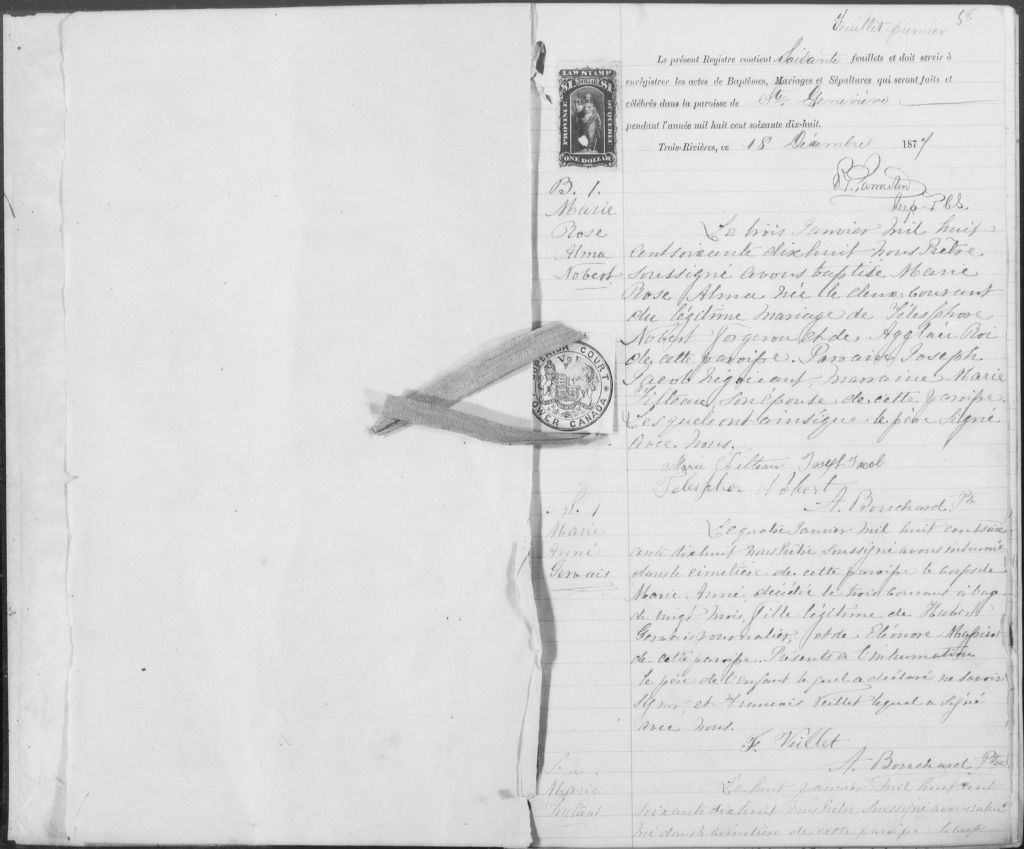 Feuillet premier
Le présent Registre contient Soixante feuillets et doit servir à
enrégistrer les actes de Baptêmes, Mariages et Sépultures qui seront faits et
célébrés dans la paroisse de Ste. Geneviève
pendant l'année mil huit cent soixante dix-huit.
Trois-Rivières, ce 18 Décembre 1877
Dep. P.C.S.
LAW STAMP
PROVINCE
OF QUEBEC
ONE DOLLAR
SUPERIOR COURT
LOWER CANADA
B. 1.
Marie
Rose
Alma
Nobert
Le trois Janvier mil huit
cent soixante dix huit nous Prêtre
soussigné avons baptisé Marie
Rose Alma née le deux courant
du légitime mariage de Télesphore
Nobert Forgeron et de Agglaée Roi
de cette paroisse. Parrain Joseph
Jacob Négociant, marraine Marie
son épouse de cette paroisse
Lesquels ont ainsi que le père signé
avec nous.
Marie Joseph Jacob
Telespher Nobert
A. Bouchard, Ptre
S. 1
Marie
Anne
Gervais
Le quatre Janvier mil huit cent soix
ante dix huit nous Prêtre soussigné avons inhumé
dans le cimetière de cette paroisse le corps de
Marie Anne, décédée le trois courant à l'age
de vingt mois, fille légitime de Hubert
Gervais Journalier, et de Eléonore
de cette paroisse. Présents a l'inhumation
le père de l'enfant lequel a déclaré ne savoir
signer, et Francois Veillet lequel a signé
avec nous.
F. Veillet
A. Bouchard, Ptre
S. 2.
Marie
Le huit Janvier mil huit cent
soixante dix huit nous Prêtre soussigné avons inhu
mé dans le cimetière de cette paroisse le corps